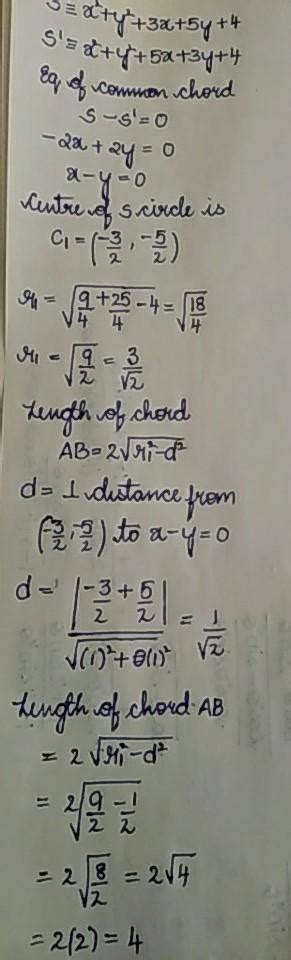 S ≡ x²+y²+3x+5y+4
S' ≡ x²+y²+5x+3y+4
Eq of common chord
S - S' = 0
-2x + 2y = 0
x - y = 0
Centre of S circle is
C₁ = (-3/2, -5/2)
r₁ = √(9/4 + 25/4 - 4) = √(18/4)
r₁ = √(9/2) = 3/√2
Length of chord
AB = 2√(r₁² - d²)
d = ⊥ distance from
(-3/2, -5/2) to x - y = 0
d = |-3/2 + 5/2| / √((1)² + (1)²) = 1/√2
Length of chord AB
= 2√(r₁² - d²)
= 2√(9/2 - 1/2)
= 2√(8/2) = 2√4
= 2(2) = 4